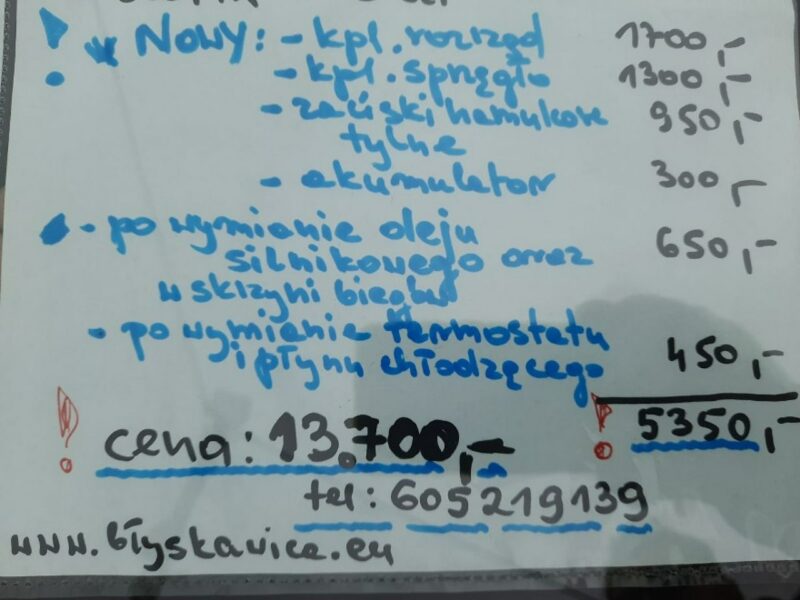 ! NOWY: - kpl. rozrząd 1700,-
- kpl. sprzęgło 1300,-
- zaciski hamulcowe 950,-
tylne
- akumulator 300,-
- po wymianie oleju
silnikowego oraz 650,-
w skrzyni biegów
- po wymianie termostatu
i płynu chłodzącego 450,-
! cena: 13.700,- ! 5350,-
tel: 605219139
www.błyskawice.eu